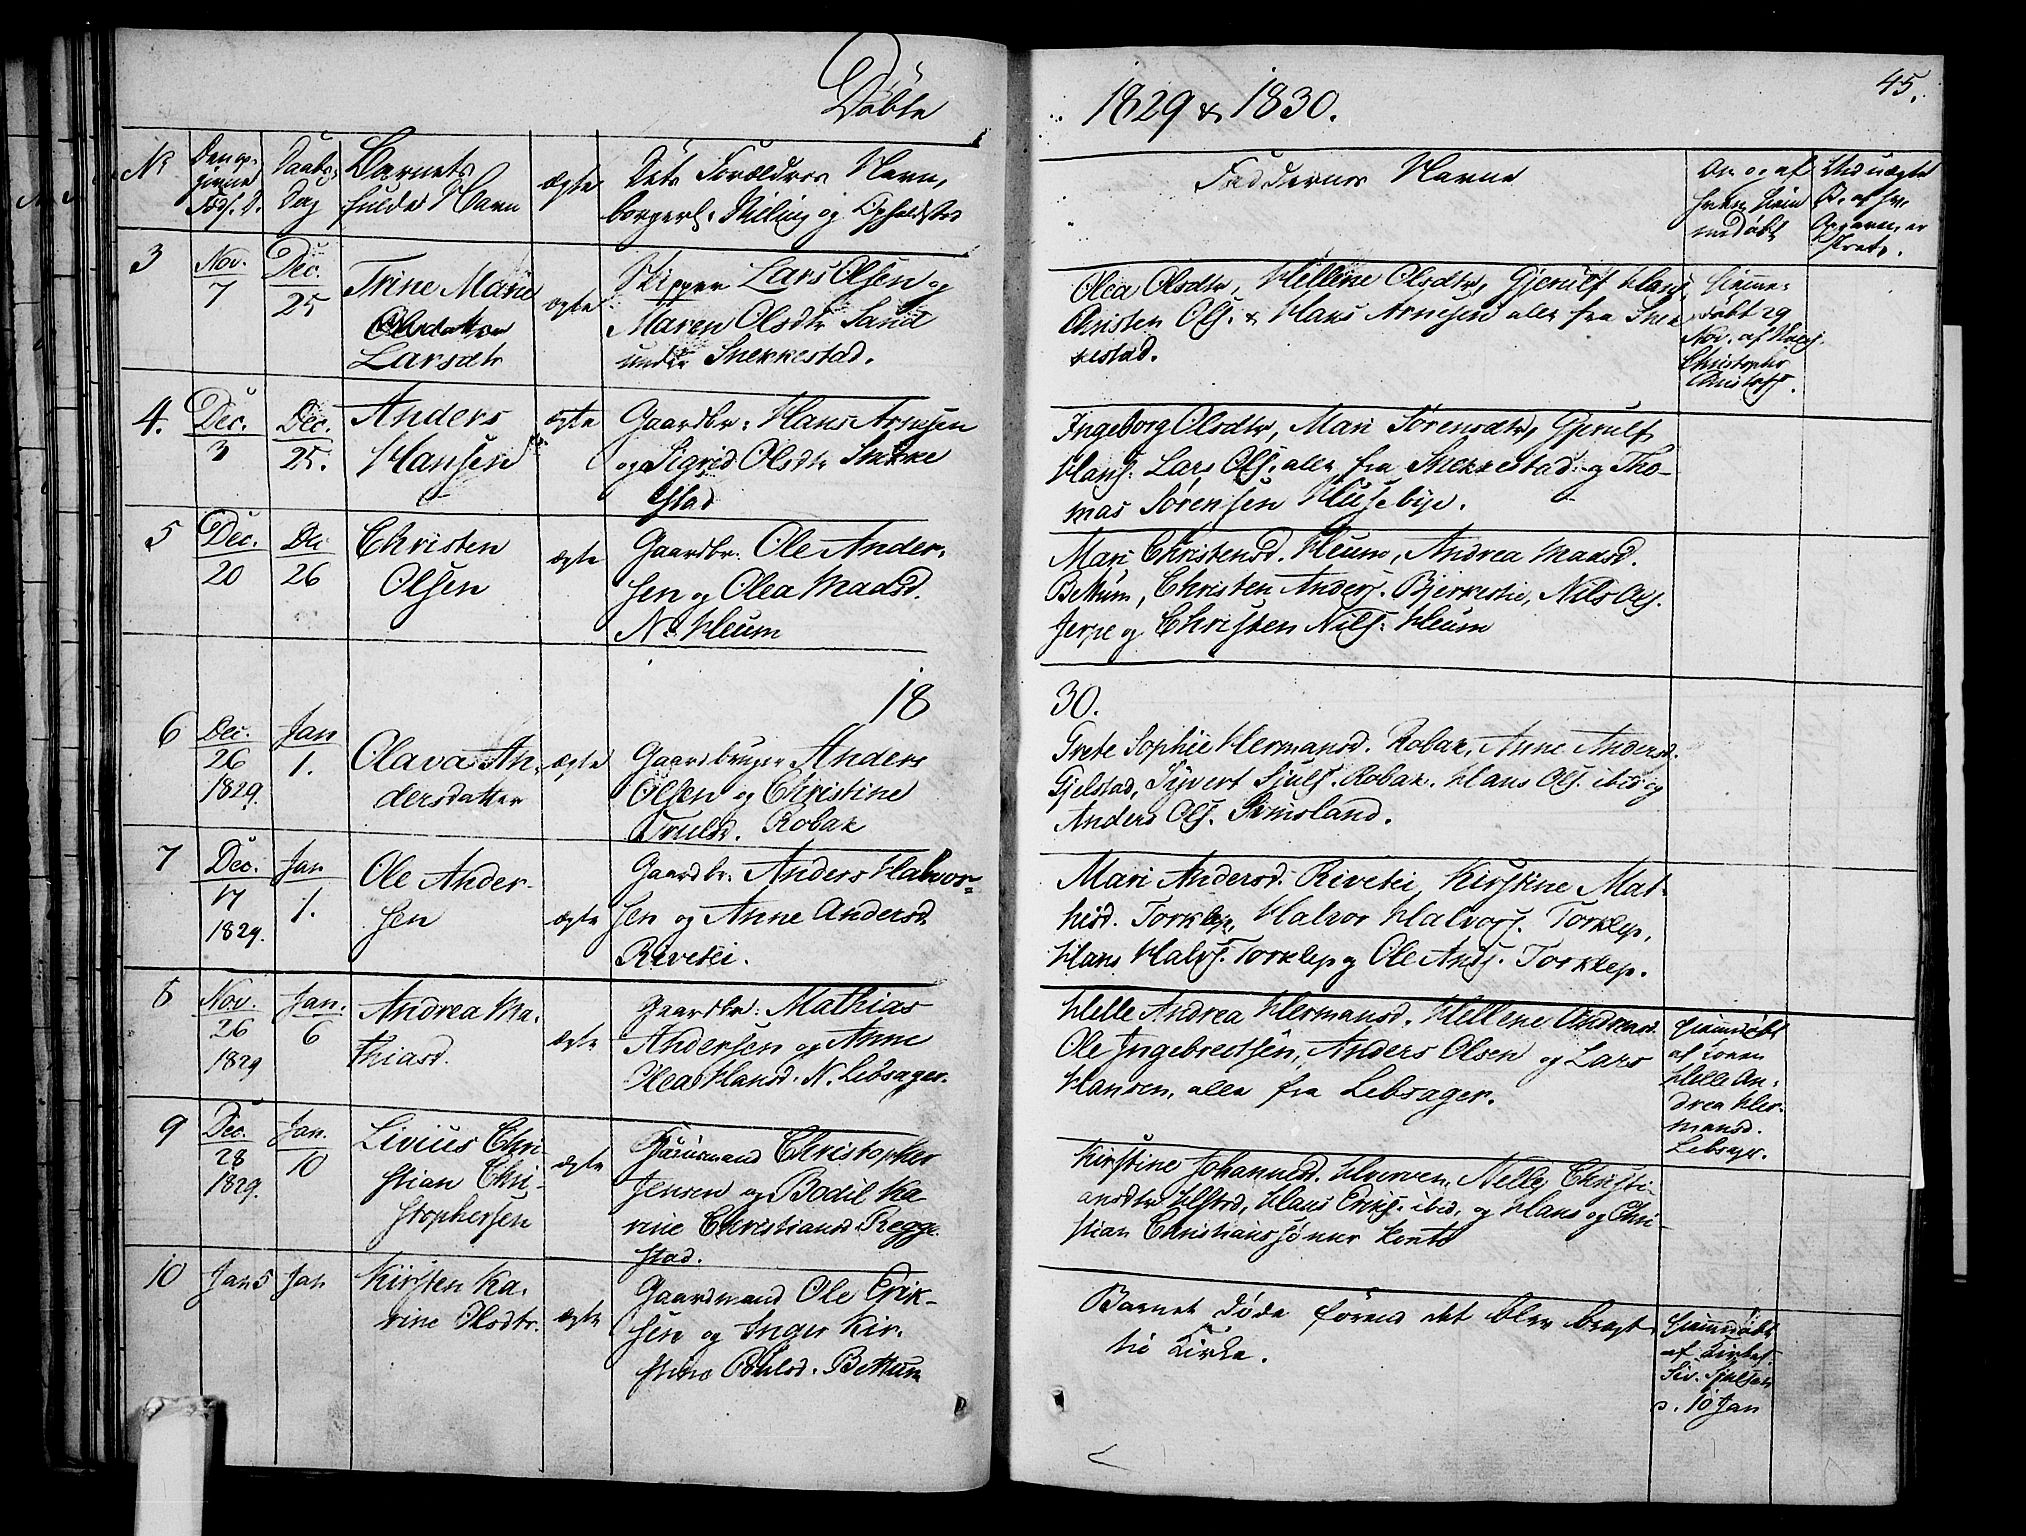 Døbte
1829 & 1830.
45.
No
Den op-
givne
Føds. D.
Daabs-
Dag
Barnets
fulde Navn
ægte
Dets Forældres Navn,
borgerl. Stilling og Opholdsted
Faddernes Navne
3
Nov.
7
Dec.
25
Trine Marie
Larsdtr
ægte
Skipper Lars Olsen og
Maren Olsdtr Sand
under Snekkestad.
Olea Olsdtr, Hellene Olsdtr, Gjerulf Hans,
Christen Ols. & Hans Arnesen alle fra Snek
kestad.
Hjemme-
døbt 29
Nov. af
Christopher
4.
Dec.
3
Dec.
25.
Anders
Hansen
ægte
Gaardbr. Hans Arnesen
og Sigrid Olsdtr Snekke
stad
Ingeborg Olsdtr, Mari Sørensdtr, Gjerulf
Hans. Lars Ols. alle fra Snekkestad og Tho-
mas Sørensen Husebye.
5
Dec.
20
Dec
26
Christen
Olsen
ægte
Gaardbr. Ole Ander-
sen og Olea Madsd.
N. Heum
Mari Christensd. Heum, Andrea Madsd.
Bettum, Christen Anders. Bjerkestie, Nils Ols.
Jerpe og Christen Nils. Heum
18
30.
6
Dec.
26
1829.
Jan
1.
Olava An-
dersdatter
ægte
Gaardbruger Anders
Olsen og Christine
Trulsd. Robak
Grete Sophie Hermansd. Robak, Anne Andersd.
Gjelstad, Syvert Sjuls. Robak. Hans Ols. ibid og
Anders Ols. Grimsland.
7
Dec.
17
1829.
Jan
1.
Ole Ander-
sen
ægte
Gaardbr. Anders Halvor-
sen og Anne Andersd
Rivesei.
Mari Andersd. Rivesei, Kirstine Mat-
hisd. Torklep, Halvor Halvors. Torklep,
Hans Halvs. Torklep og Ole Ands. Torklep.
8
Nov.
26
1829
Jan.
6
Andrea Ma-
thiasd.
ægte
Gaardbr. Mathias
Andersen og Anne
Olea Hansd. N. Lebsager.
Helle Andrea Hermansd. Hellene Andreasd.
Ole Ingebrectsen, Anders Olsen og Lars
Hansen, alle fra Lebsager.
Hjemmedøbt
af Konen
Helle An-
drea Her-
mansd.
Lebsager.
9
Dec.
28
1829.
Jan.
10
Livius Chri-
stian Chri-
stophersen
ægte
Huusmand Christopher
Jensen og Bodil Ka
rine Christiansd Regge
stad.
Kirstine Johannesd. Hverven, Nelly Christi-
ansdtr Ulstad, Hans Eriks. ibid, og Hans og Chri-
stian Christianssønner Konto
10
Jan 5
Jan
Kirsten Ka-
rine Olsdtr.
ægte
Gaardmand Ole Erik-
sen og Inger Kir-
stine Poulsd. Bettum
Barnet døde førend det blev bragt
til Kirke.
Hjemmedøbt
af Kirkes.
Siv. Sjulsen
d. 10 Jan